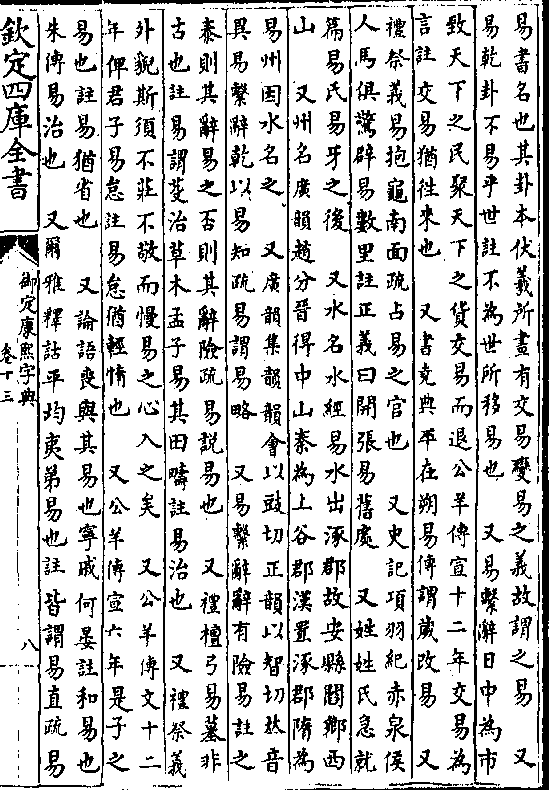 易書名也其卦本伏羲所畫有交易變易之義故謂之易　又
易乾卦不易乎世註不為世所移易也　又易繫辭日中為市
致天下之民聚天下之貨交易而退公羊傳宣十二年交易為
言註交易猶徃來也　又書堯典平在朔易傳謂歲改易　又
禮祭義易抱龜南面疏占易之官也　又史記項羽紀赤泉侯
人馬俱驚辟易數里註正義曰開張易舊處　又姓姓氏急就
篇易氏易牙之後　又水名水經易水出涿郡故安縣閻鄉西
山　又州名廣韻趙分晉得中山秦為上谷郡漢置涿郡隋為
易州因水名之　又廣韻集韻韻會以豉切正韻以智切𠀤音
異易繫辭乾以易知疏易謂易略　又易繫辭辭有險易註之
泰則其辭易之否則其辭險疏易説易也　又禮檀弓易墓非
古也註易謂芟治草木孟子易其田疇註易治也　又禮祭義
外貌斯須不莊不敬而慢易之心入之矣　又公羊傳文十二
年俾君子易怠註易怠猶輕惰也　又公羊傳宣六年是子之
易也註易猶省也　又論語喪與其易也寧戚何晏註和易也
朱傳易治也　又爾雅釋詁平均夷弟易也註皆謂易直疏易
欽定四庫全書
御定康熙字典
卷十三
八